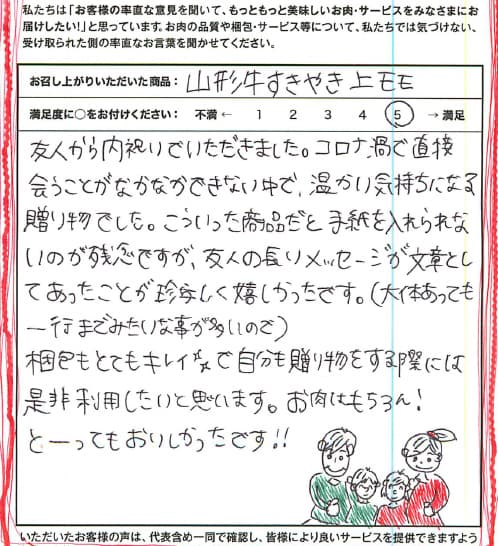 私たちは「お客様の率直な意見を聞いて、もっともっと美味しいお肉・サービスをみなさまにお
届けしたい!」と思っています。お肉の品質や梱包・サービス等について、私たちでは気づけない、
受け取られた側の率直なお言葉を聞かせてください。
お召し上がりいただいた商品: 山形牛すきやき上モモ
満足度に○をお付けください: 不満 ← 1 2 3 4 5 → 満足
友人から内祝いでいただきました。コロナ渦で直接
会うことがなかなかできない中で、温かい気持ちになる
贈り物でした。こういった商品だと手紙を入れられな
いのが残念ですが、友人の長いメッセージが文章とし
てあったことが珍しく嬉しかったです。(大体あっても
一行までみたいな事が多いので)
梱包もとてもキレイなので自分も贈り物をする際には
是非利用したいと思います。お肉はもちろん!
とーってもおいしかったです!!
いただいたお客様の声は、代表含め一同で確認し、皆様により良いサービスを提供できますよう